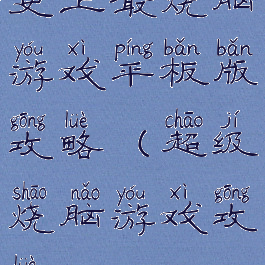 史上最烧脑
yóu xì píng bǎn bǎn
游戏平板版
gōng lüè chāo jí
攻略(超级
shāo nǎo yóu xì gōng
烧脑游戏攻
lüè